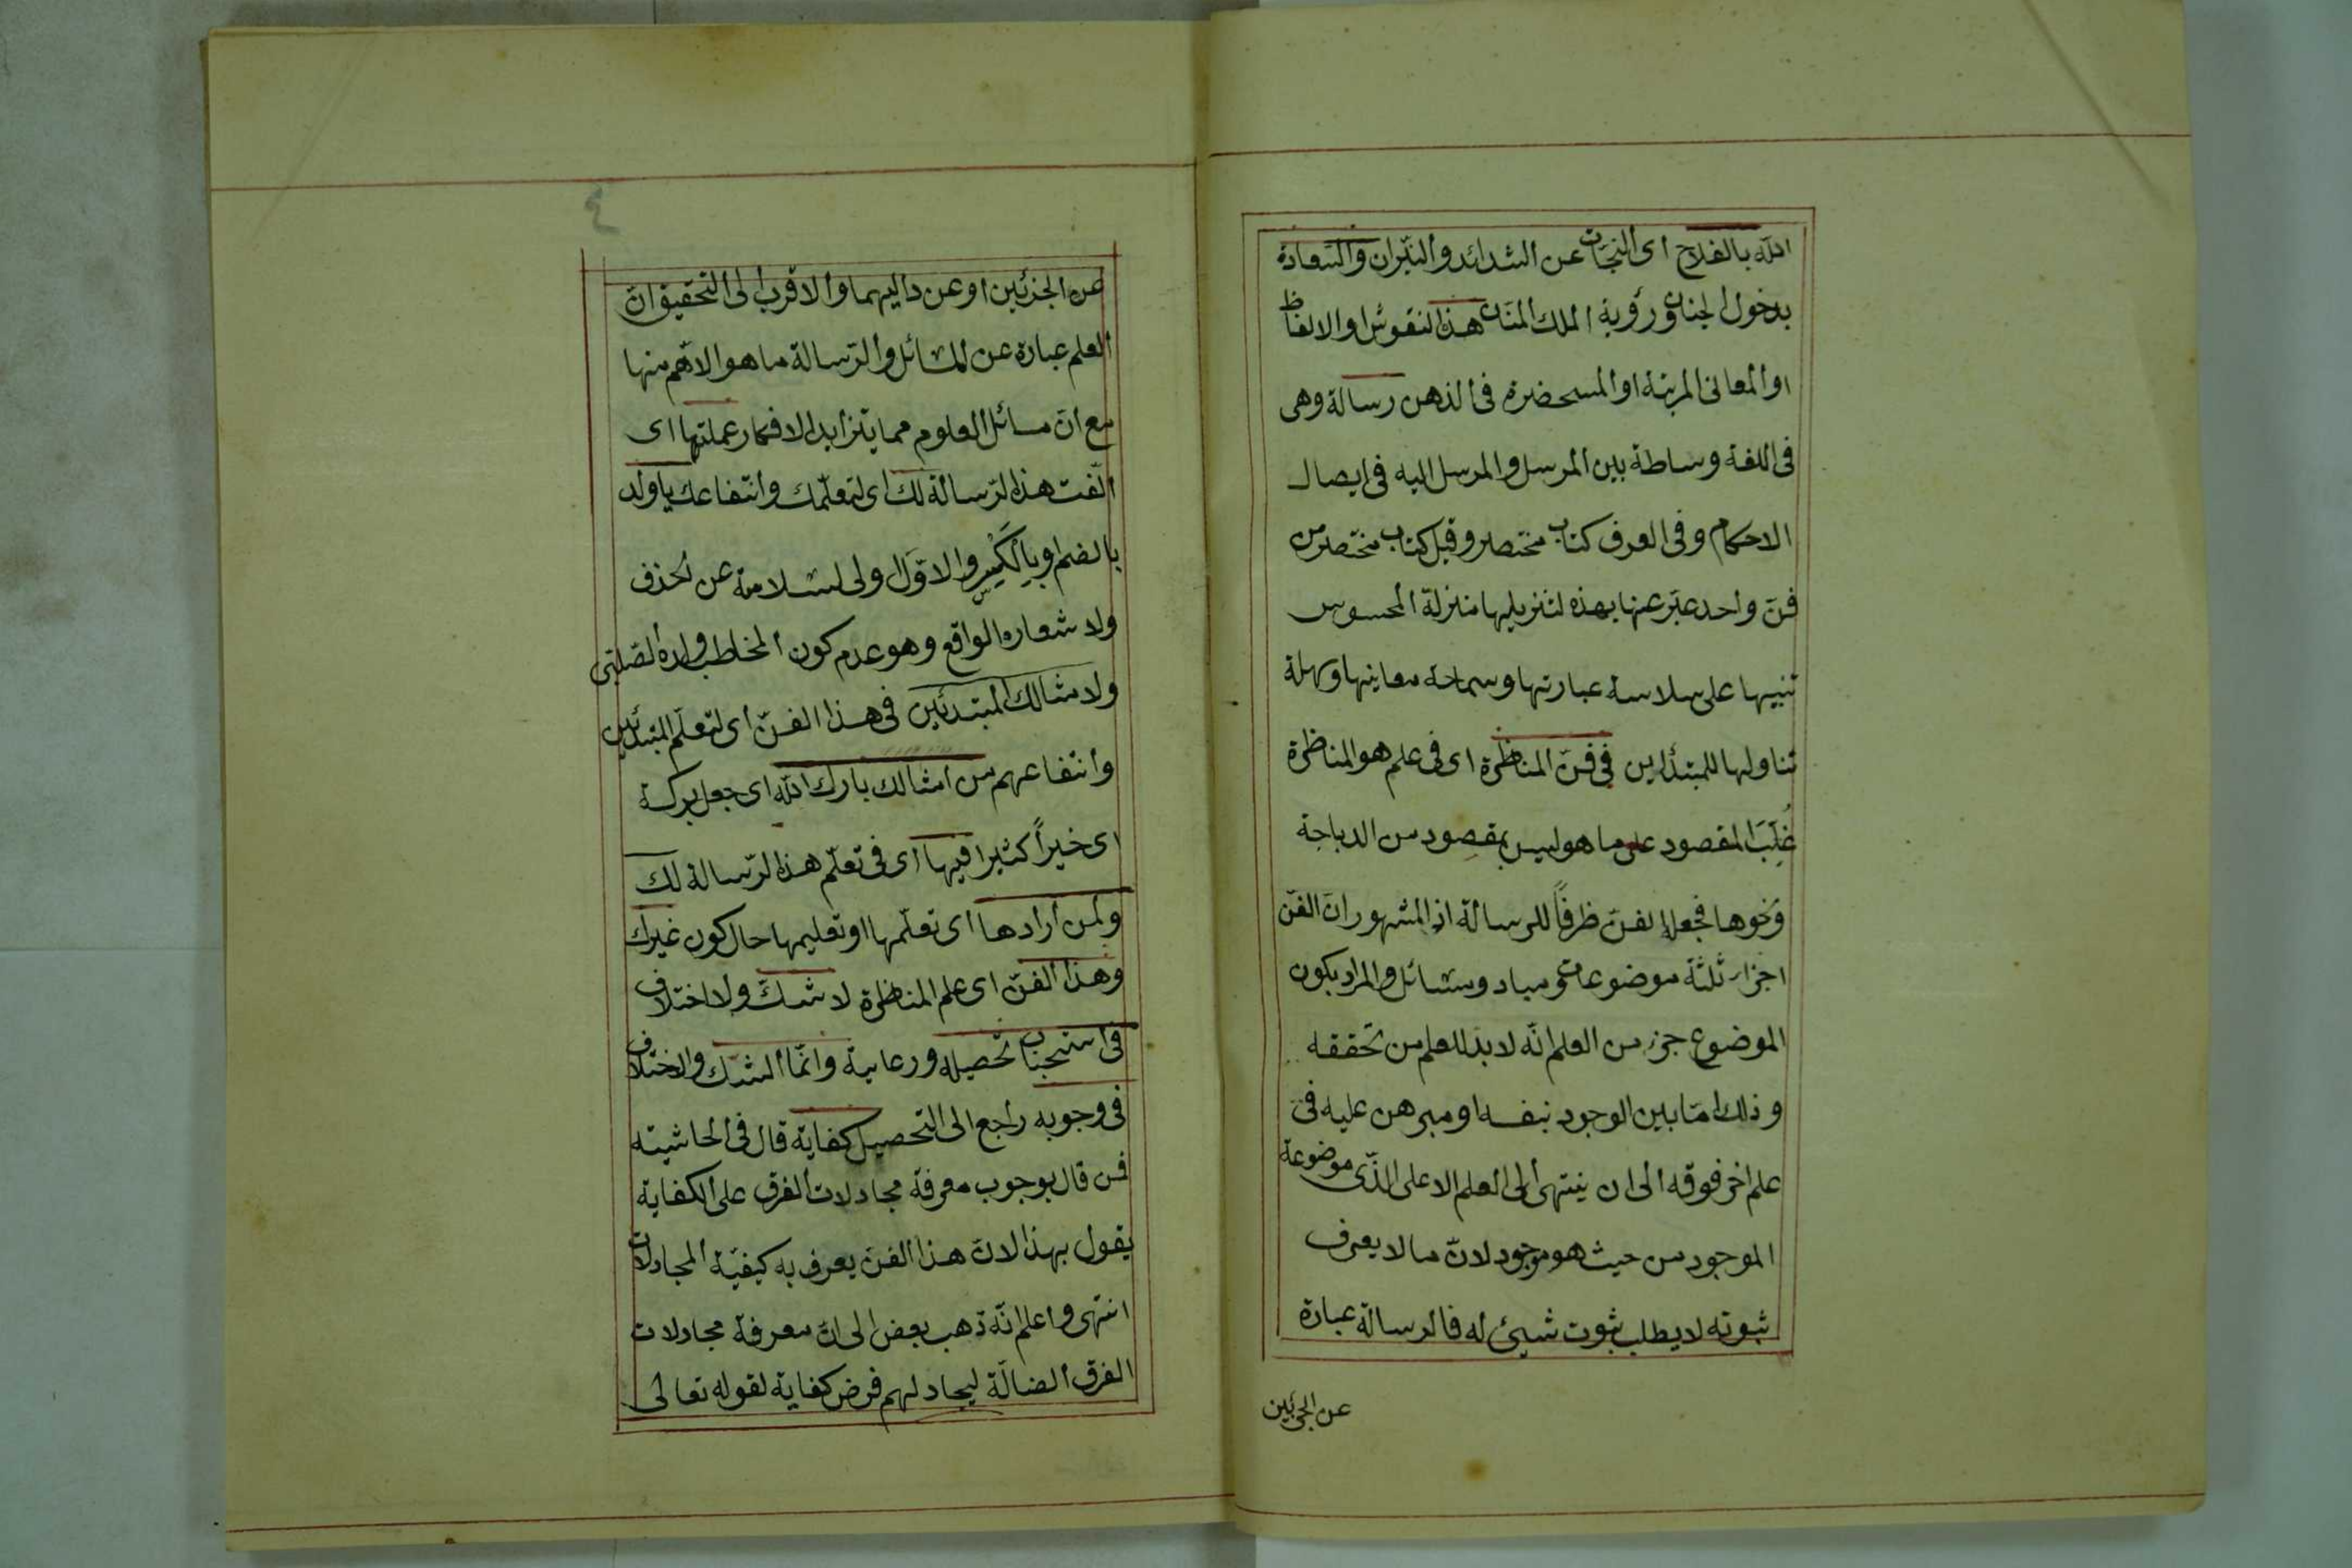 الله بالفلاح اى النجات عن الشدائد والنّيران والسّعادة
بدخول الجنان ورؤية الملك المنّان هذه النقوش او الالفاظ
او المعانى المرتبة او المستحضرة فى الذهن رسالة وهى
فى اللغة وساطة بين المرسل والمرسل اليه فى ايصال
الاحكام وفى العرف كتاب مختصر وقيل كتاب مختصر من
فنّ واحد عبّر عنها بهذه لتنزيلها منزلة المحسوس
تنبيها على سلاسة عبارتها وسماحة معانيها وسهلة
تناولها للمبتدأين فى فنّ المناظرة اى فى علم هو المناظرة
غُلِّبَ المقصود على ما هو ليس بمقصود من الدباجة
ونحوها فجعل الفنّ ظرفًا للرسالة اذ المشهور انّ الفنّ
اجزاء ثلثة موضوعات ومباد ومسائل والمراد بكون
الموضوع جزء من العلم انّه لابدّ للعلم من تحققه
وذلك امّا بين الوجود بنفسه او مبرهن عليه فى
علم اخر فوقه الى ان ينتهى الى العلم الاعلى الذّى موضوعة
الموجود من حيث هو موجود لانّ ما لا يعرف
ثبوته لا يطلب ثبوت شيئ له فالرسالة عبارة
عن الجزئين
٤
عن الجزئين او عن داليهما والاقرب الى التحقيق انّ
العلم عبارة عن المسائل والرّسالة ما هو الاهّم منها
مع انّ مسائل العلوم مما يتزايد الافكار عملتها اى
الّفت هذه الرّسالة لك اى لتعلّمك وانتفاعك يا ولد
بالضم او بالكَسْرِ والاوّل اولى لسلامة عن الحذف
ولاشعاره الواقع وهو عدم كون المخاطب ولده الصّلبّى
ولامثالك المبتدئين فى هذا الفنّ اى لتعلّم المبتدئين
وانتفاعهم من امثالك بارك الله اى جعل بركة
اى خيراً كثيرا فيها اى فى تعلّم هذه الرّسالة لك
ولمن ارادها اى تعلّمها او تعليمها حال كون غيرك
وهذا الفنّ اى علم المناظرة لا شكّ ولا اختلاف
فى استحباب تحصيله ورعاية وانّما الشكّ والاختلاف
فى وجوبه راجع الى التحصيل كفاية قال فى الحاشيته
فمن قال بوجوب معرفة مجادلات الفرق على الكفاية
يقول بهذا لانّ هذا الفنّ يعرف به كيفيّة المجادلات
انتهى واعلم انّه ذهب بعض الى انّ معرفة مجادلات
الفرق الضالّة ليجادلهم فرض كفاية لقوله تعالى